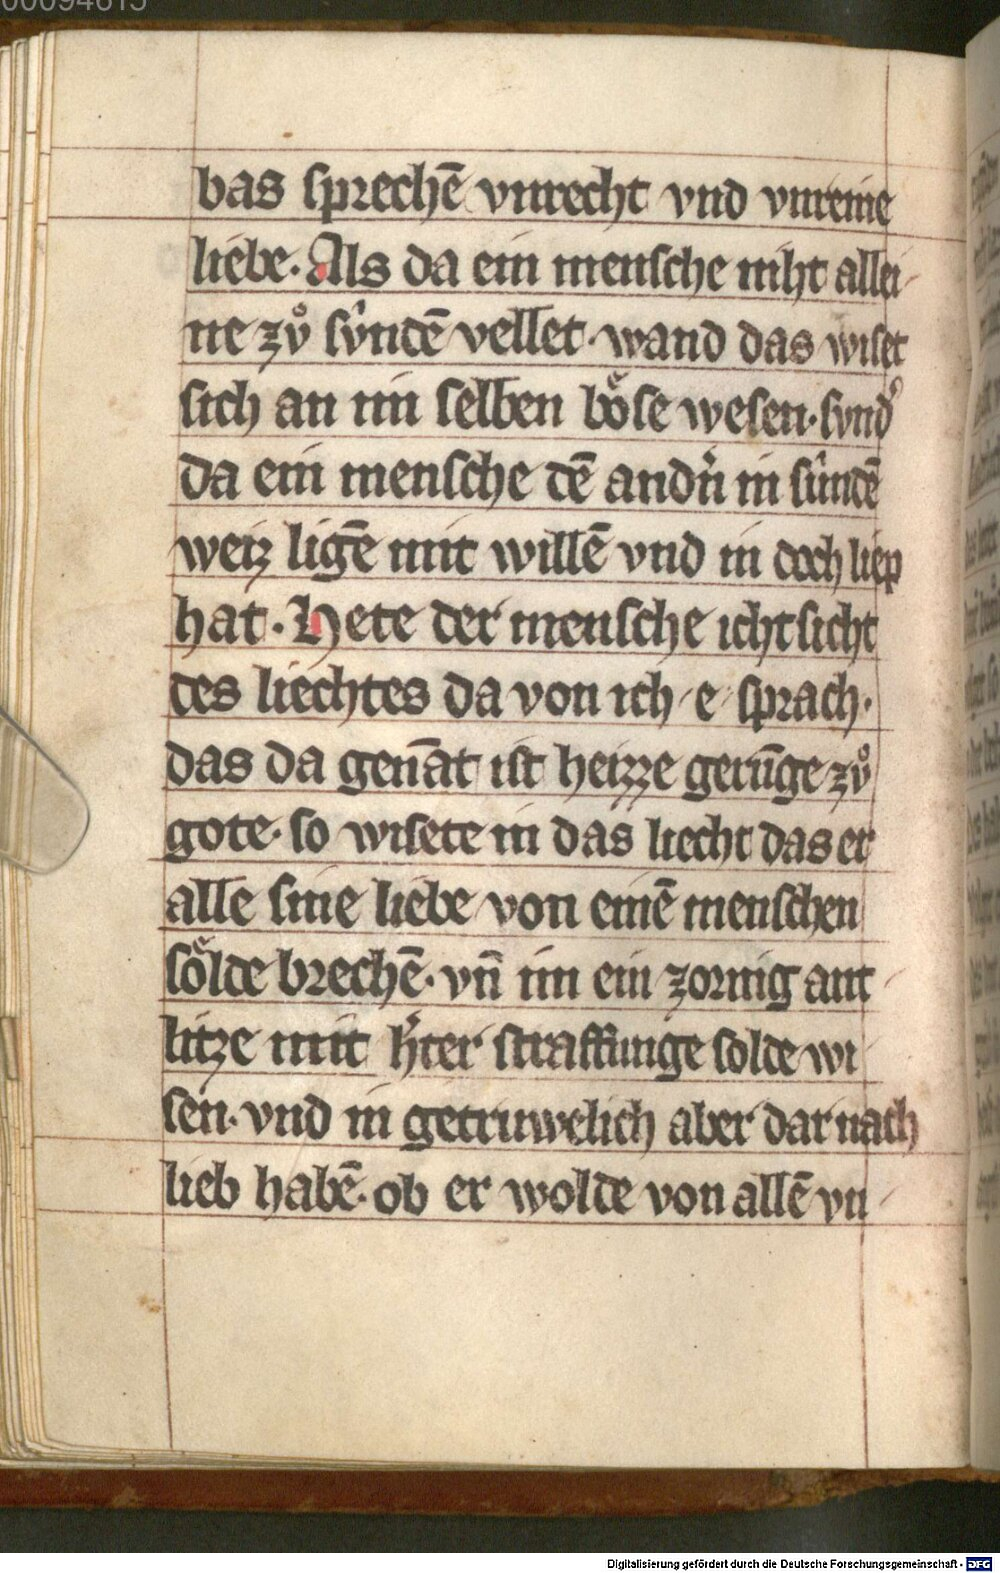 00094615
bas sprechē vnrecht vnd vnreine
liebe. Als da ein mensche niht allei-
ne zů sv̂ndē vellet. wand das wiset
sich an im selben bo͛se wesen. synd͛
da ein mensche dē andn̄ in sûndē
weiz ligē mit willē vnd in doch liep
hat. Hete der mensche icht sicht
des liechtes da von ich e sprach.
das da genāt ist heizze gerūge zů
gote. so wisete in das liecht das er
alle sine liebe von einē menschen
so͛lde brechē. vn̄ im ein zornig ant-
litze mit h͛ter straffunge solde wi-
sen. vnd in getruwelich aber dar nach
lieb habē. ob er wolde von allē vn-
Digitalisierung gefördert durch die Deutsche Forschungsgemeinschaft - DFG